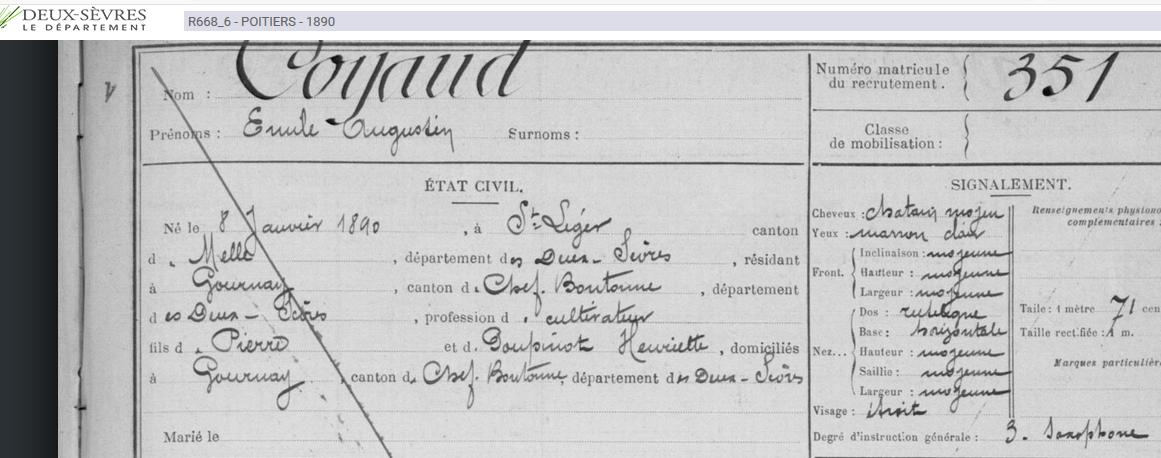 DEUX-SÈVRES
LE DÉPARTEMENT
R668_6 - POITIERS - 1890
Nom : Coyaud
Prénoms : Emile Augustin Surnoms :
Numéro matricule du recrutement. 351
Classe de mobilisation :
ÉTAT CIVIL.
Né le 8 Janvier 1890, à St Léger canton
d Melle, département des Deux-Sèvres, résidant
à Gournay, canton de Chef-Boutonne, département
des Deux-Sèvres, profession de cultivateur
fils de Pierre et de Goupinot Henriette, domiciliés
à Gournay, canton de Chef-Boutonne, département des Deux-Sèvres
Marié le
SIGNALEMENT.
Cheveux : chatain moyen
Yeux : marron clair
Front. Inclinaison : moyenne
Hauteur : moyenne
Largeur : moyenne
Nez... Dos : rectiligne
Base : horizontale
Hauteur : moyenne
Saillie : moyenne
Largeur : moyenne
Visage : étroit
Renseignements physiono
complémentaires :
Taille : 1 mètre 71 cen
Taille rectifiée : 1 m.
Marques particulière
Degré d'instruction générale : 3. Saxophone